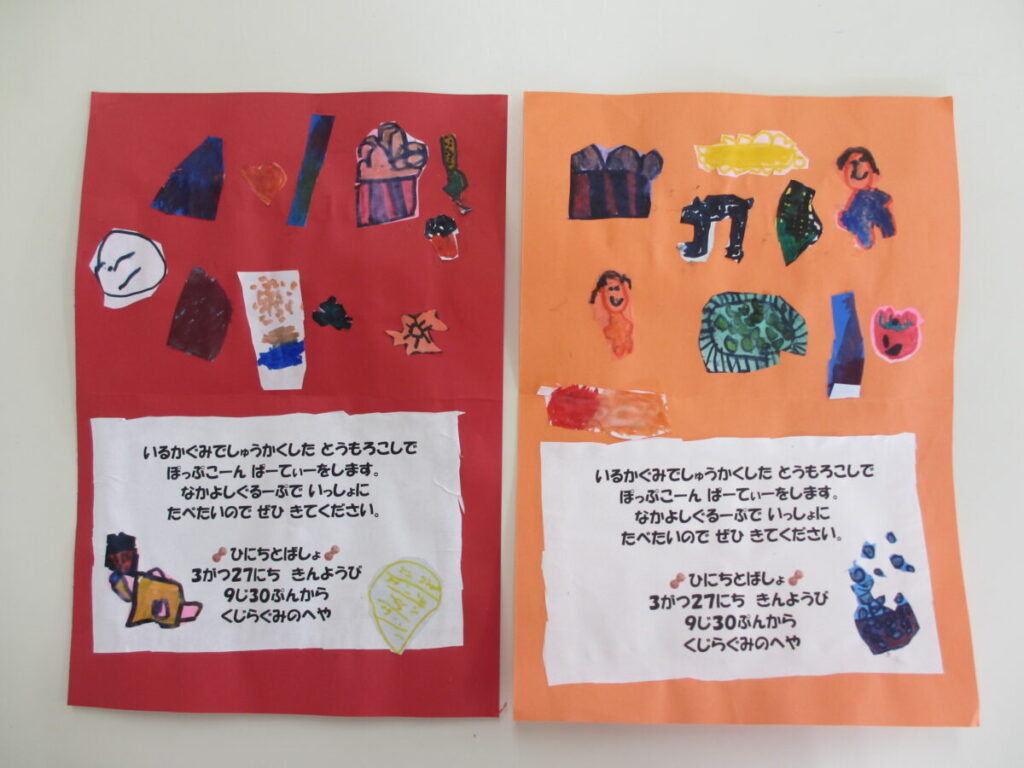 いるかぐみでしゅうかくした とうもろこしで
ぽっぷこーん ぱーてぃーをします。
なかよしぐるーぷで いっしょに
たべたいので ぜひ きてください。
ひにちとばしょ
3がつ27にち きんようび
9じ30ぷんから
くじらぐみのへや
いるかぐみでしゅうかくした とうもろこしで
ぽっぷこーん ぱーてぃーをします。
なかよしぐるーぷで いっしょに
たべたいので ぜひ きてください。
ひにちとばしょ
3がつ27にち きんようび
9じ30ぷんから
くじらぐみのへや